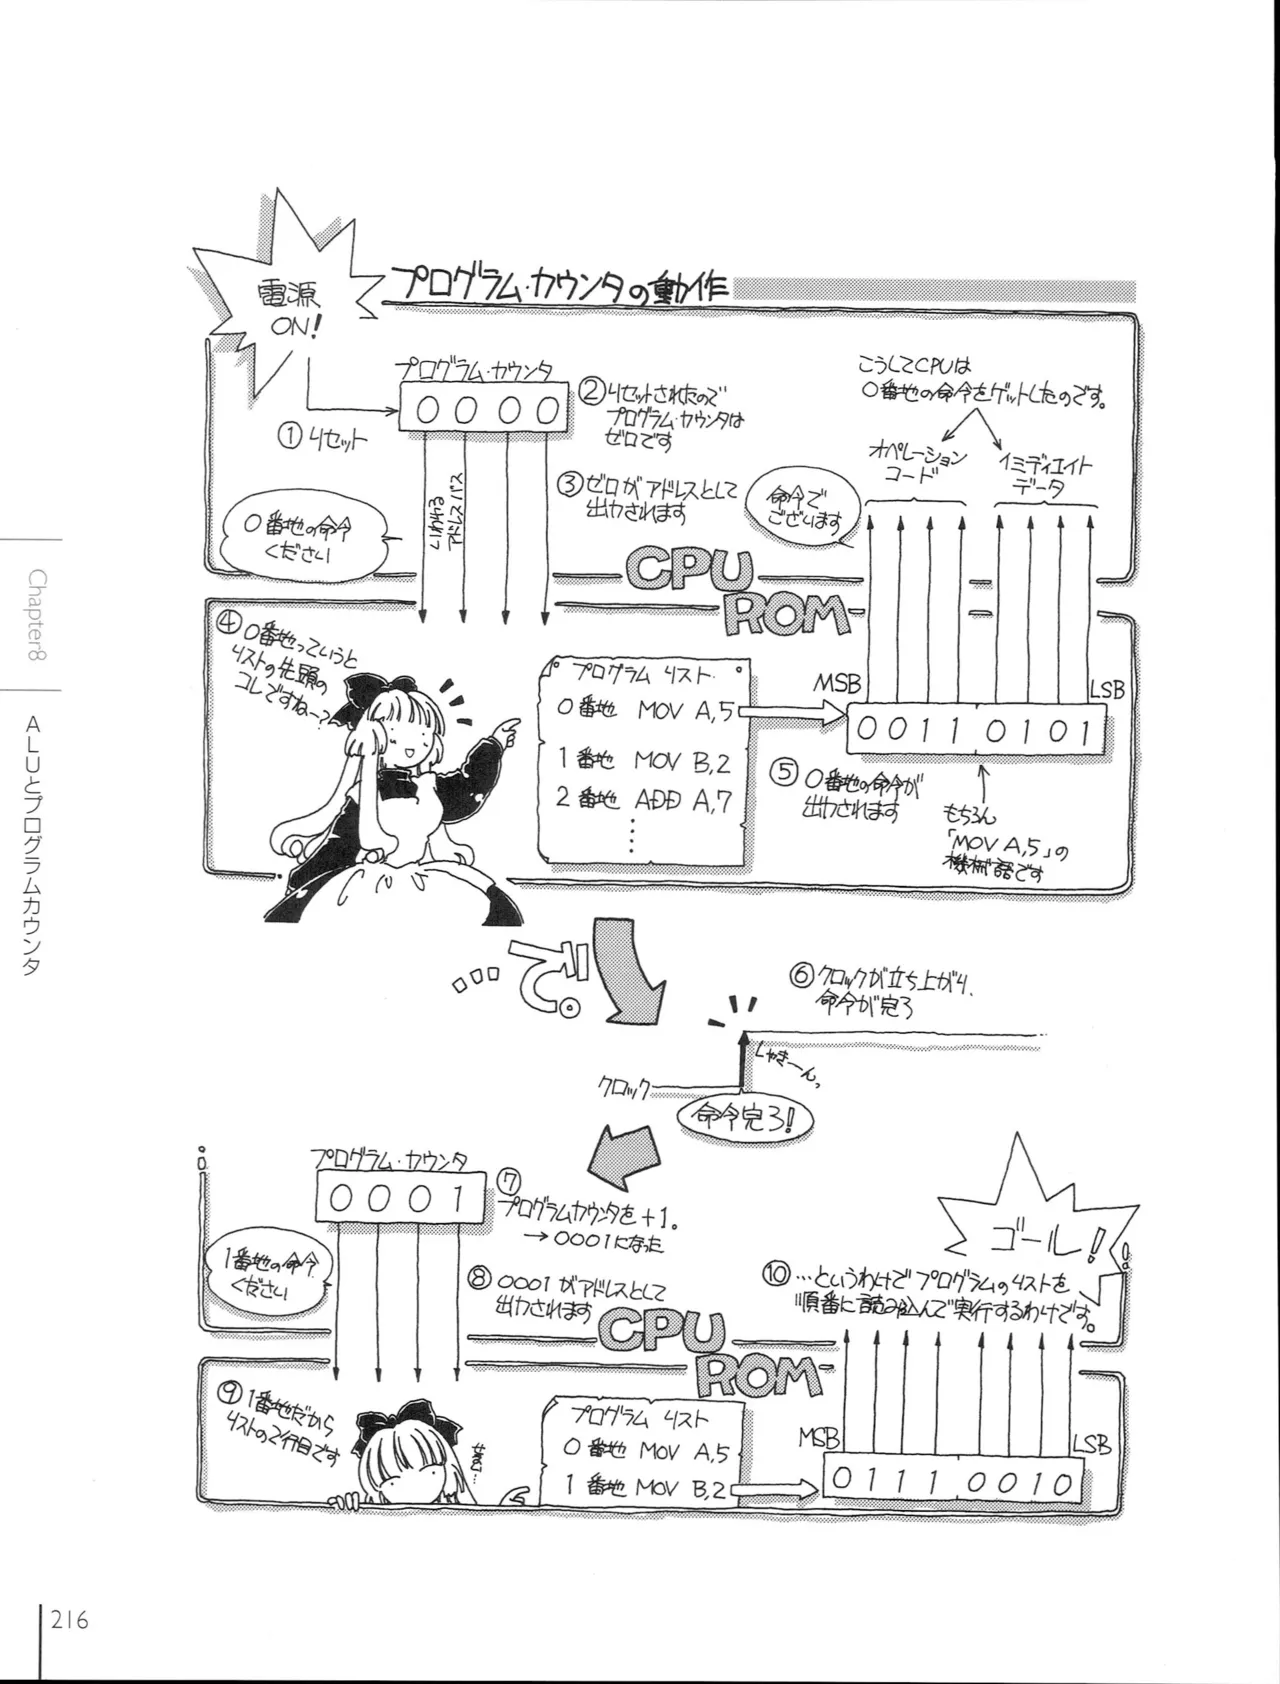 電源
ON!
プログラム・カウンタの動作
プログラム・カウンタ
0000
① リセット
② リセットされたので
プログラム・カウンタは
ゼロです
③ ゼロがアドレスとして
出力されます
いわゆる
アドレスバス
0番地の命令
ください
こうしてCPUは
0番地の命令をゲットしたのです。
オペレーション
コード
イミディエイト
データ
命令で
ございます
CPU
ROM
④ 0番地っていうと
リストの先頭の
コレですねー?
プログラム リスト
0番地 MOV A,5
1番地 MOV B,2
2番地 ADD A,7
⋮
MSB
LSB
0011 0101
⑤ 0番地の命令が
出力されます
もちろん
「MOV A,5」の
機械語です
…で。
⑥ クロックが立ち上がり、
命令が完了
しゃきーん。
クロック
命令完了!
プログラム・カウンタ
0001
⑦
プログラムカウンタを+1。
→0001になった
1番地の命令
ください
⑧ 0001がアドレスとして
出力されます
ゴール!
⑩ …というわけでプログラムのリストを
順番に読み込んで実行するわけです。
CPU
ROM
⑨ 1番地だから
リストの2行目です
プログラム リスト
0番地 MOV A,5
1番地 MOV B,2
MSB
LSB
0111 0010
Chapter8
ALUとプログラムカウンタ
216